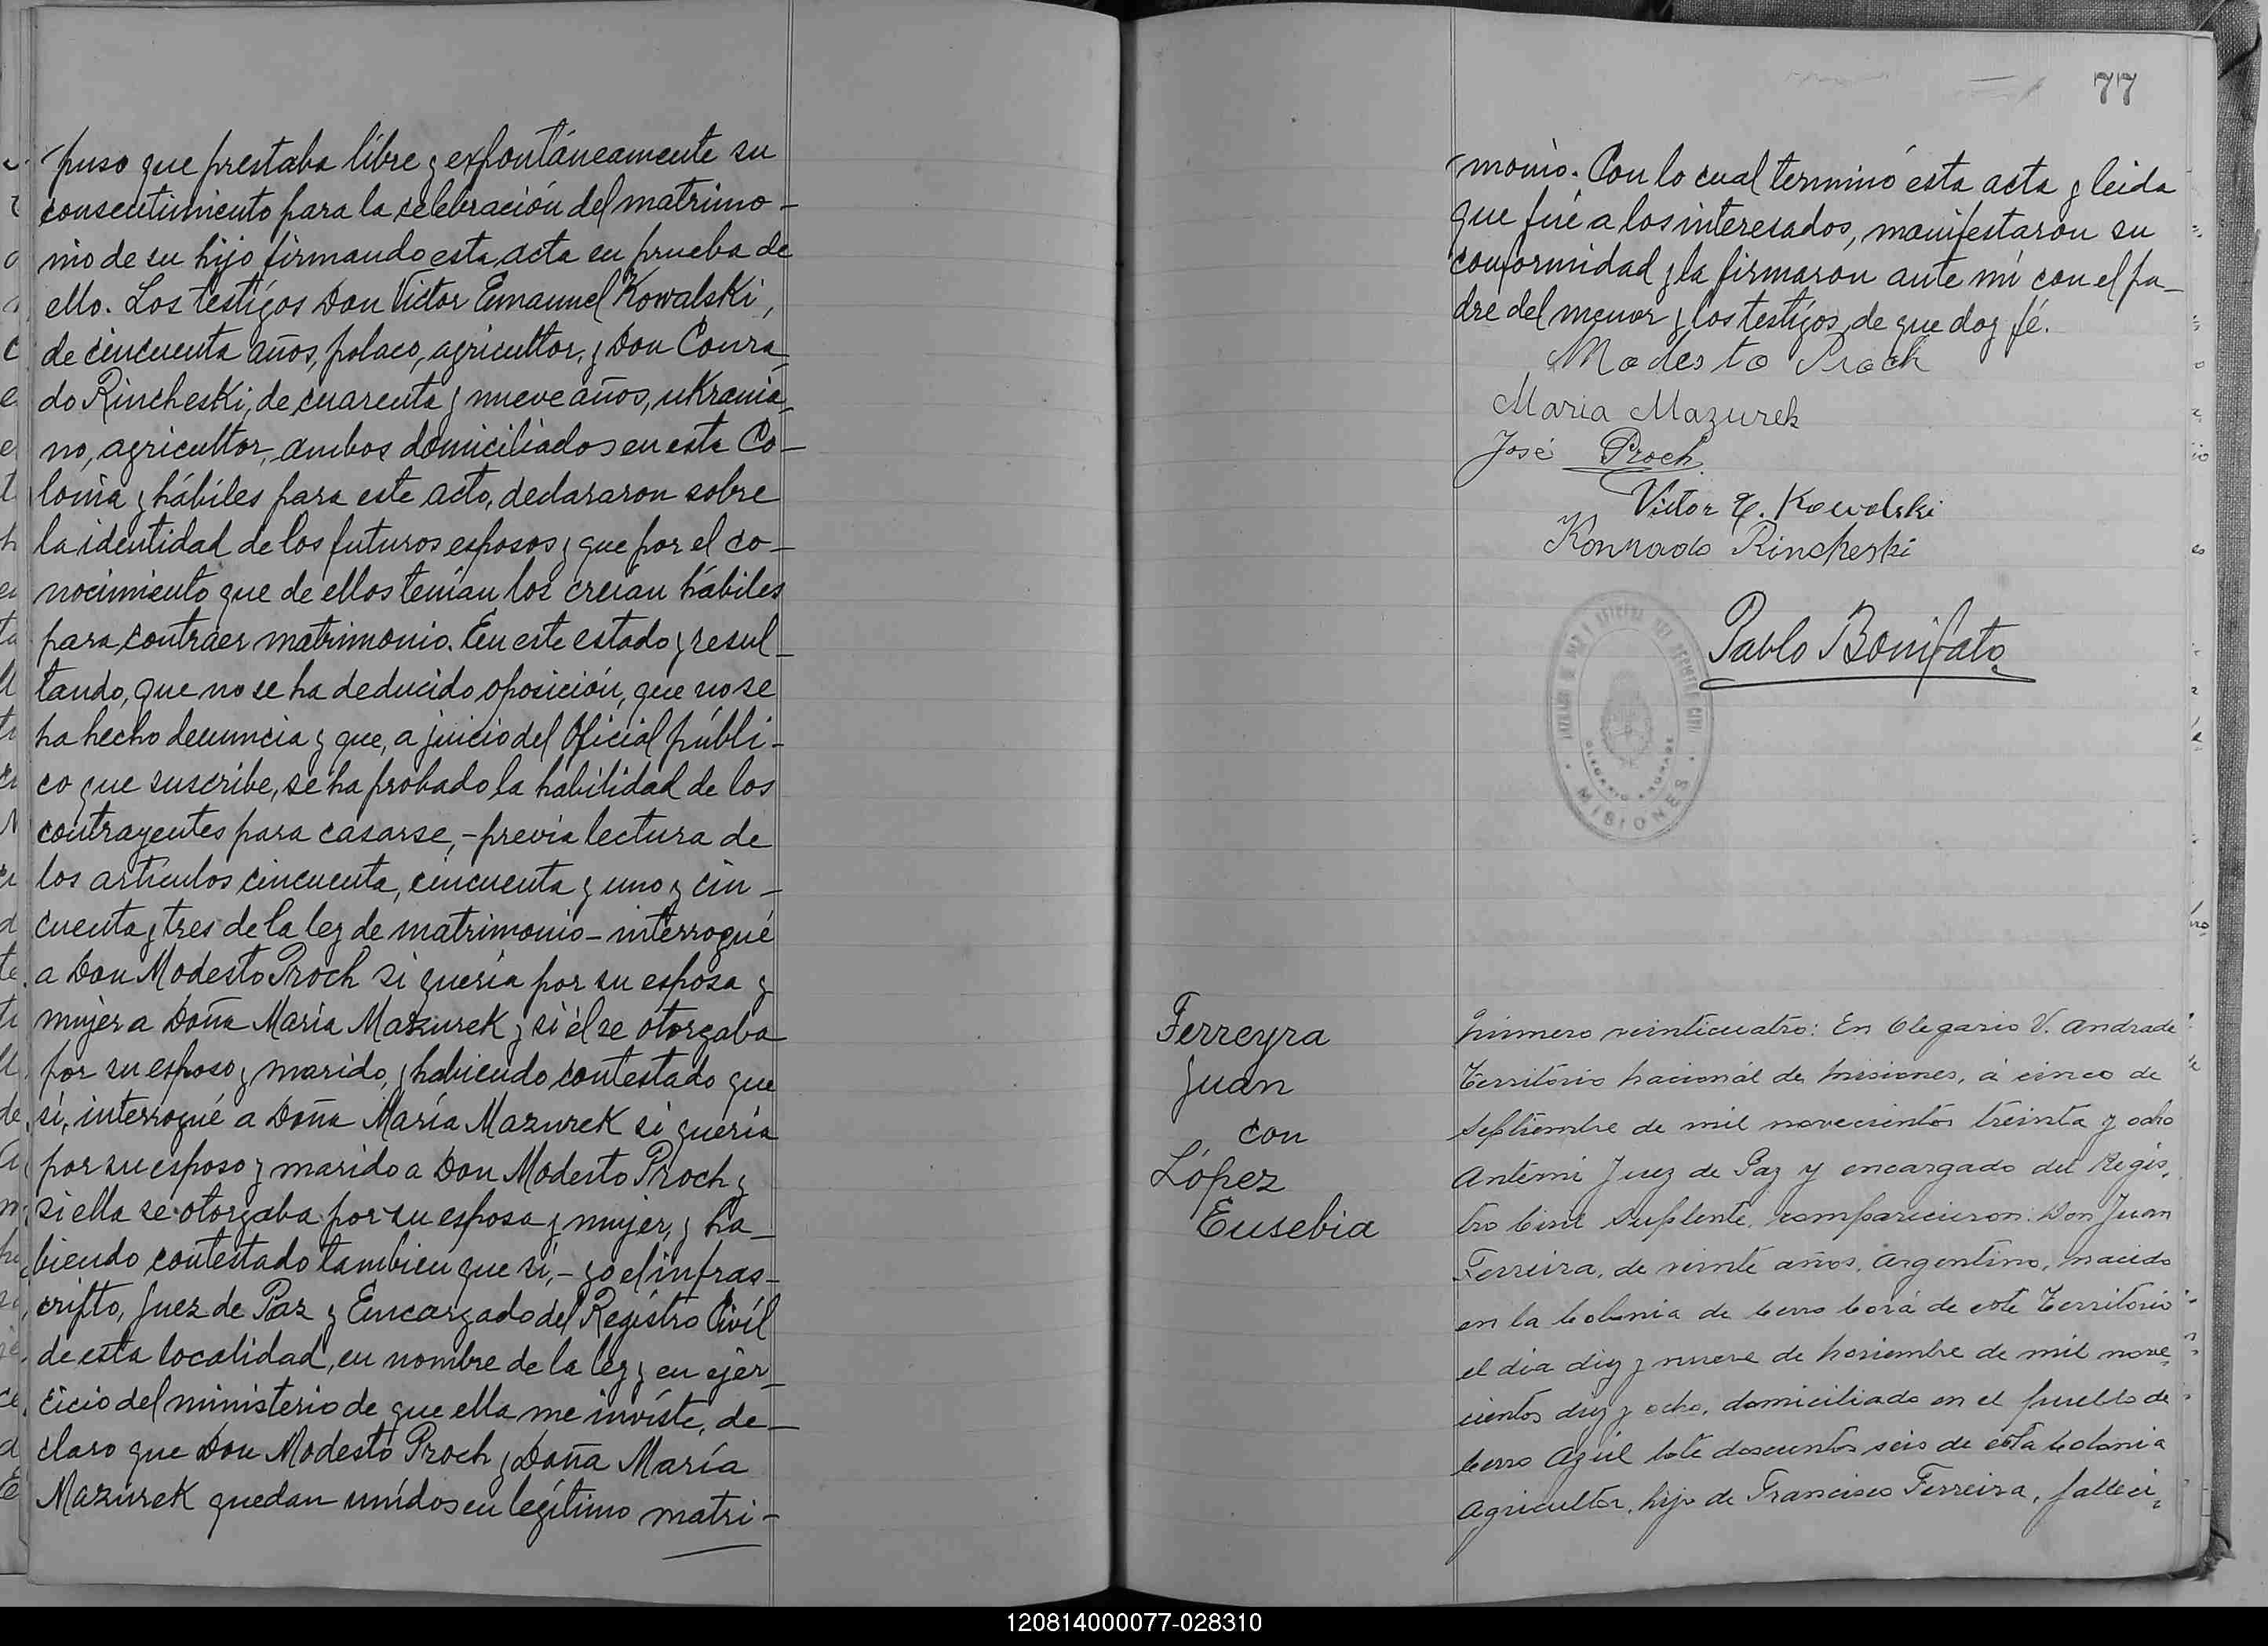 puso que prestaba libre y expontáneamente su
consentimiento para la celebración del matrimo-
nio de su hijo firmando esta acta en prueba de
ello. Los testígos Don Víctor Emanuel Kowalski,
de cincuenta años, polaco, agricultor, y Don Conra-
do Rincheski, de cuarenta y nueve años, ukrania-
no, agricultor, ambos domiciliados en esta Co-
lonia y hábiles para este acto, declararon sobre
la identidad de los futuros esposos y que por el co-
nocimiento que de ellos tenían los creían hábiles
para contraer matrimonio. En este estado y resul-
tando, que no se ha deducido oposición, que no se
ha hecho denuncia y que, a juicio del Oficial públi-
co que suscribe, se ha probado la habilidad de los
contrayentes para casarse, - previa lectura de
los artículos cincuenta, cincuenta y uno y cin-
cuenta y tres de la ley de matrimonio - interrogué
a Don Modesto Proch si quería por su esposa y
mujer a Doña María Mazurek y si él se otorgaba
por su esposo y marido, y habiendo contestado que
si, interrogué a Doña María Mazurek si quería
por su esposo y marido a Don Modesto Proch y
si ella se otorgaba por su esposa y mujer, y ha-
biendo contestado tambien que si, - yo el infras-
cripto, Juez de Paz y Encargado del Regístro Civíl
de esta localidad, en nombre de la ley y en ejer-
cicio del ministerio de que ella me invíste, de-
claro que Don Modesto Proch y Doña María
Mazurek quedan unídos en legítimo matri-
77
monio. Con lo cual terminó esta acta y leida
que fué a los interesados, manifestaron su
conformidad y la firmaron ante mí con el pa-
dre del menor y los testígos de que doy fé.
Modesto Proch
Maria Mazurek
José Proch
Victor E. Kowalski
Konrado Rincheski
Pablo Bonifato
MISIONES
Ferreyra
Juan
con
López
Eusebia
Número veinticuatro: En Olegario V. Andrade
Territorio Nacional de Misiones, á cinco de
Septiembre de mil novecientos treinta y ocho
Antemi Juez de Paz y encargado del Regis-
tro Civil Suplente, comparecieron: Don Juan
Ferreira, de veinte años, Argentino, nacido
en la Colonia de Cerro Corá de este Territorio
el día diez y nueve de Noviembre de mil nove-
cientos diez y ocho, domiciliado en el pueblo de
Cerro Azúl lote doscientos seis de esta Colonia
Agricultor, hijo de Francisco Ferreira, falleci-
120814000077-028310